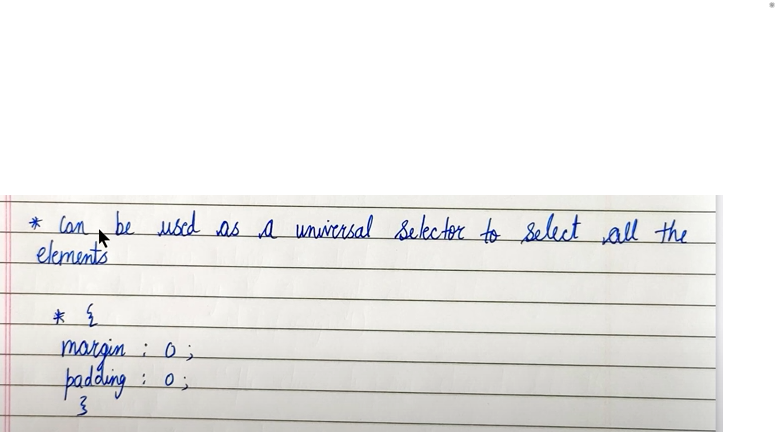 * Can be used as a universal selector to select all the
elements
* {
margin : 0 ;
padding : 0 ;
}